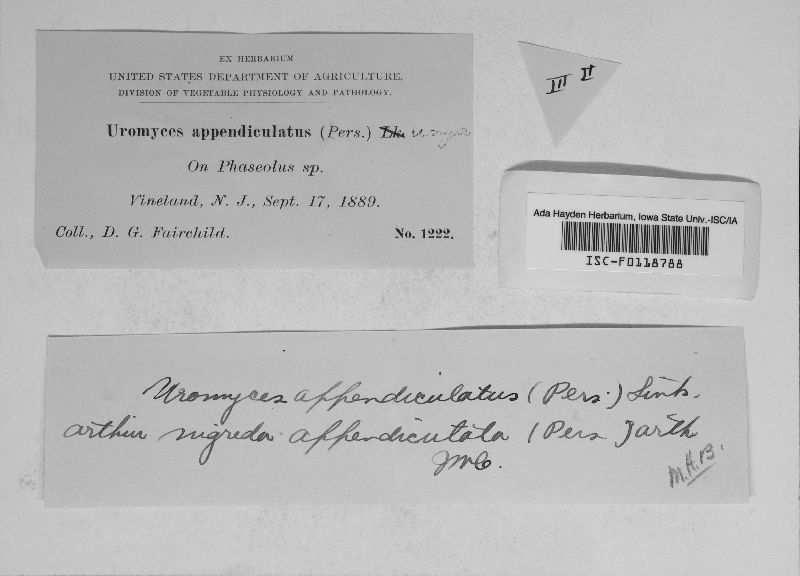 EX HERBARIUM
UNITED STATES DEPARTMENT OF AGRICULTURE.
DIVISION OF VEGETABLE PHYSIOLOGY AND PATHOLOGY.
Uromyces appendiculatus (Pers.) Lk.
On Phaseolus sp.
Vineland, N. J., Sept. 17, 1889.
Coll., D. G. Fairchild.
No. 1222.
III II
Ada Hayden Herbarium, Iowa State Univ.-ISC/IA
ISC-F0118788
Uromyces appendiculatus (Pers.) Link.
arthur nigredo appendiculata (Pers) arth
M.H.13.